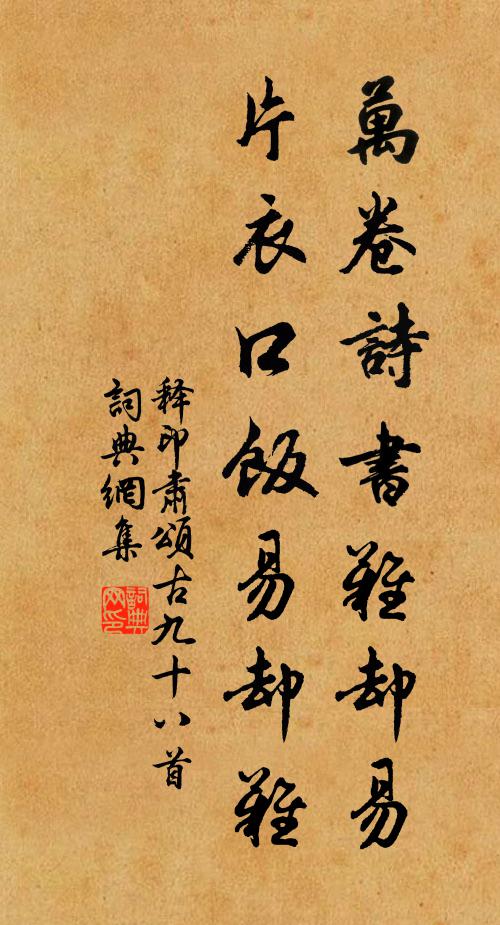 萬卷詩書難却易
片衣口飯易却難
释印肅頌古九十八首
詞典網集
詞典网印